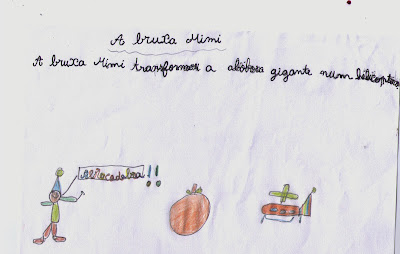 A bruxa Mimi
A bruxa Mimi transformou a abóbora gigante num helicóptero.
Abracadabra!!